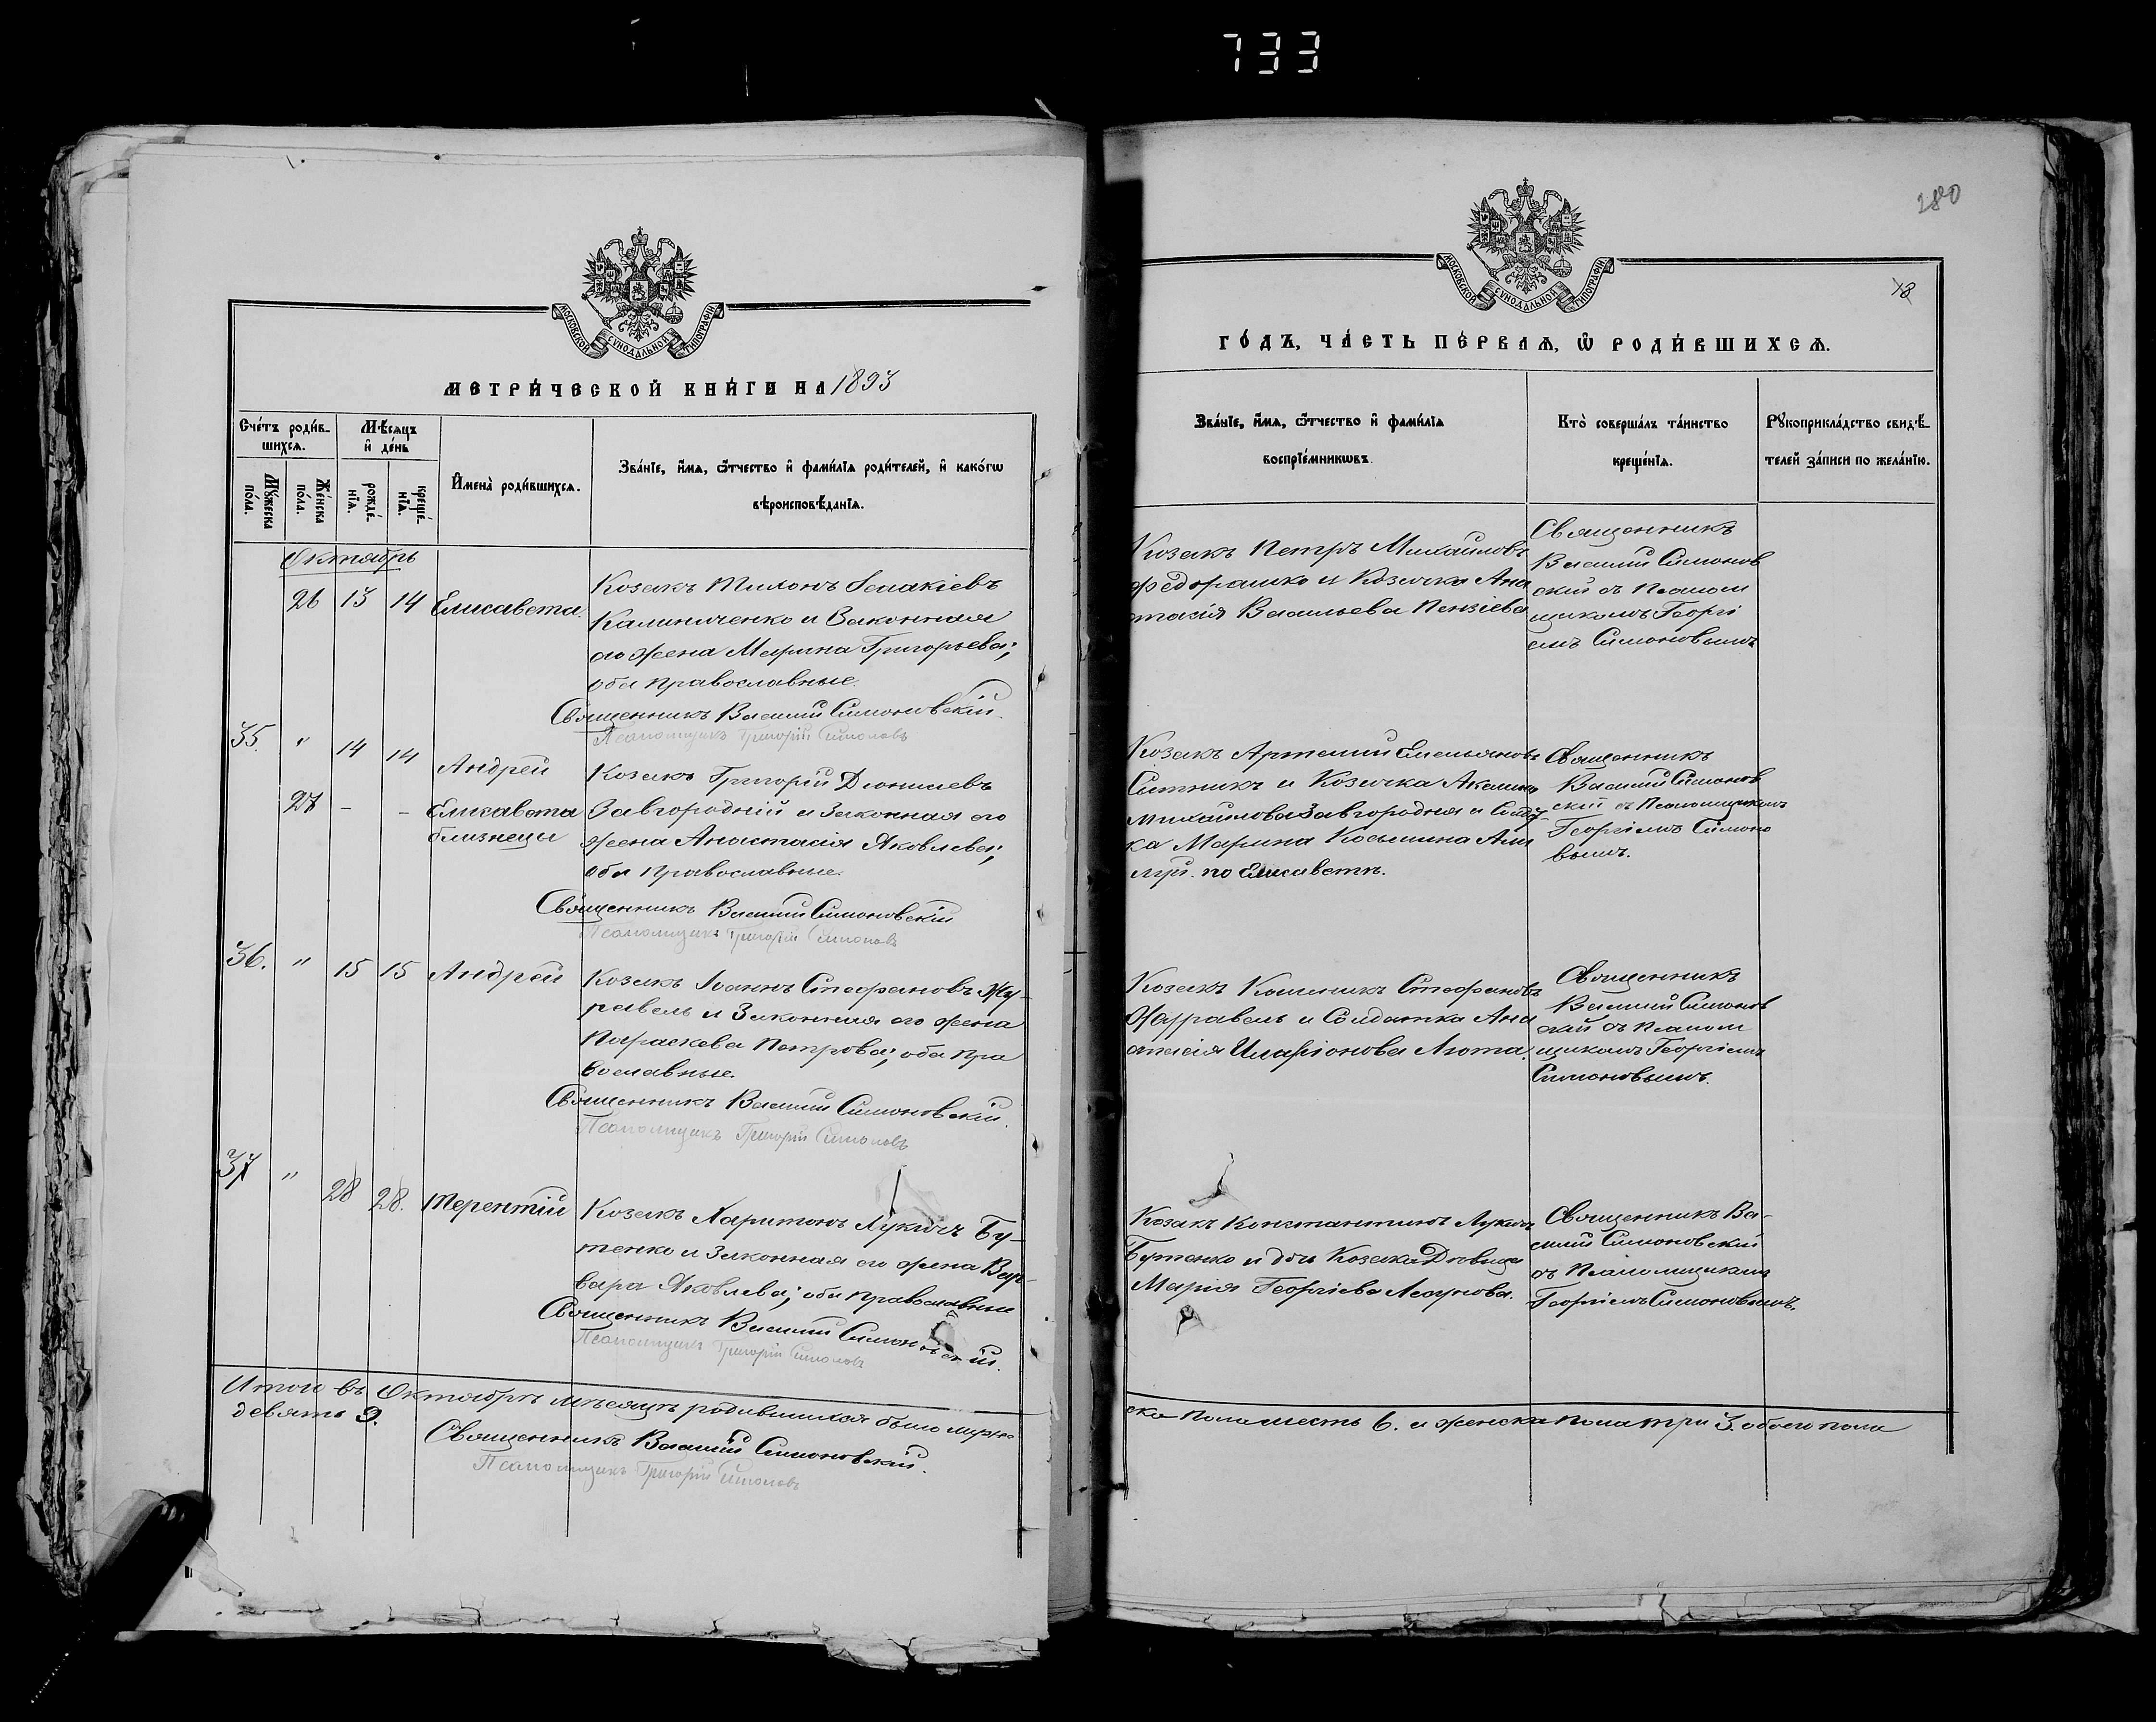 733
280
18
МОСКОВСКОЙ СѴНОДАЛЬНОЙ ТИПОГРАФІИ
МЕТРИ́ЧЕСКОЙ КНИ́ГИ НА 1893
Сче́тъ роди́вшихсѧ.
Мѣ́сѧцъ и҆ де́нь
Мꙋ́жеска по́ла.
Же́нска по́ла.
рожде́нїѧ.
креще́нїѧ.
И҆мена̀ роди́вшихсѧ.
Зва́нїе, и҆́мѧ, ѻ҆́тчество и҆ фами́лїѧ роди́телей, и҆ како́гѡ
вѣроисповѣ́данїѧ.
Октябрь
26 13 14 Елисавета.
Козакъ Тихонъ Исаакіевъ
Калиниченко и законная
его жена Марина Григорьева;
оба православные.
Священникъ Василій Симоновскій.
Псаломщикъ Григорій Симоновъ
35. " 14 14 Андрей
27 – – Елисавета
близнецы
Козакъ Григорій Діонисіевъ
Завгородній и законная его
жена Анастасія Яковлева;
оба православные.
Священникъ Василій Симоновскій
Псаломщикъ Григорій Симоновъ
36. " 15 15 Андрей
Козакъ Іоаннъ Стефановъ Жу-
равель и законная его жена
Параскева Петрова; оба пра
вославные.
Священникъ Василій Симоновскій.
Псаломщикъ Григорій Симоновъ
37 " 28 28. Терентій
Козакъ Харитонъ Лукичъ Бу-
тенко и законная его жена Вар-
вара Яковлева; оба православные
Священникъ Василій Симоновскій.
Псаломщикъ Григорій Симоновъ
Итого въ Октябрѣ мѣсяцѣ родившихся было муже
девять 9.
Священникъ Василій Симоновскій.
Псаломщикъ Григорій Симоновъ
МОСКОВСКОЙ СѴНОДАЛЬНОЙ ТИПОГРАФІИ
ГО́ДЪ, ЧА́СТЬ ПЕ́РВАѦ, Ѡ҆ РОДИ́ВШИХСѦ.
Зва́нїе, и҆́мѧ, ѻ҆́тчество и҆ фами́лїѧ
воспрїе́мникѡвъ.
Кто̀ соверша́лъ та́инство
креще́нїѧ.
Рꙋкоприкла́дство свидѣ́-
телей за́писи по жела́нїю.
Козакъ Петръ Михайловъ
Федорашко и Козачка Ана
стасія Васильева Пензіева
Священникъ
Василій Симонов
скій съ Псалом
щикомъ Георгі
емъ Симоновымъ
Козакъ Артемій Емельяновъ
Ситникъ и Козачка Акилина
Михайлова Завгородняя и Солдат-
ка Марина Косьмина
по Елисаветѣ.
Священникъ
Василій Симонов
скій съ Псаломщикомъ
Георгіемъ Симоно
вымъ.
Козакъ Каленикъ Стефановъ
Журавель и Солдатка Ана
стасія Иларіонова Люта.
Священникъ
Василій Симонов
скій съ Псалом
щикомъ Георгіемъ
Симоновымъ.
Козакъ Константинъ Лукичъ
Бутенко и дочь Козака Дѣвица
Марія Георгіева Леонова.
Священникъ Ва-
силій Симоновскій
съ Псаломщикомъ
Георгіемъ Симоновымъ.
ска пола шесть 6. и женска пола три 3. обоего пола